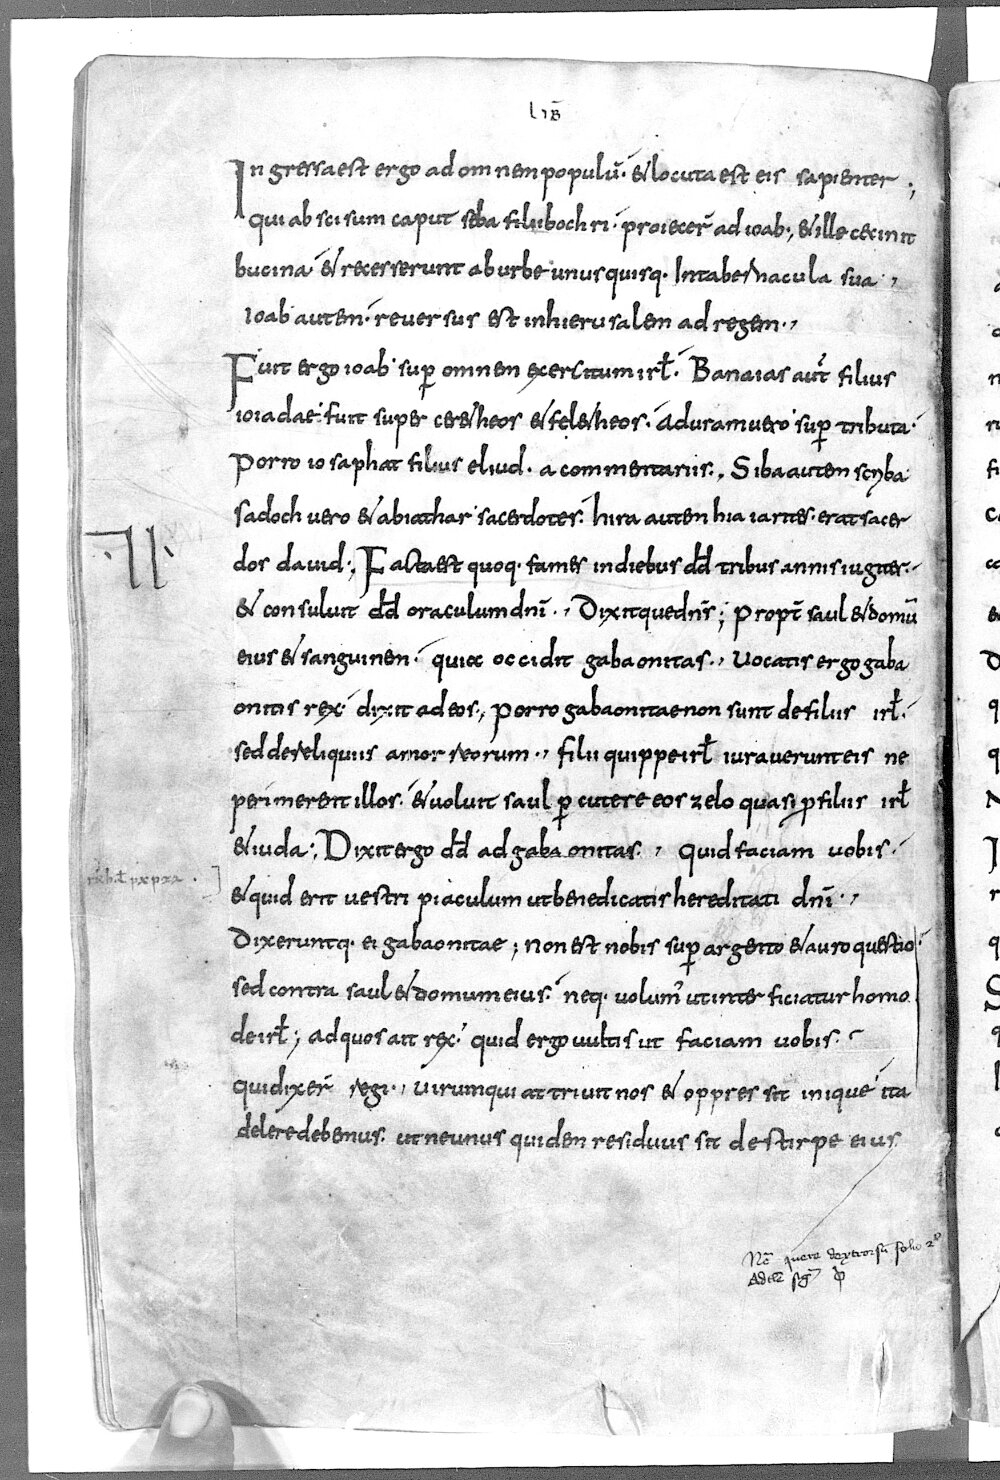 LIB̄
In gressa est ergo ad om nem populū. & locuta est eis sapienter ;
qui ab sci sum caput seba filii boch ri. proiecer̄ ad ioab., & ille cecinit
bucina & recesserunt ab urbe unus quisq. In tabernacula sua .,
Ioab autem. reversus est in hierusalem ad regem.,
Fuit ergo ioab sup̱ omnem exercitum isrł. Banaias aut̄ filius
ioiadae. fuit super cer&heos & fel&heos. Aduram vero sup̱ tributa.
Porro iosaphat filius eliud. a commentariis., Siba autem scyba
sadoch vero & abiathar sacerdotes. hira autem hiaiartes. erat sacer
dos david., Facta est quoq. fames in diebus dd̄ tribus annis iugiter.
& consuluit dd̄ oraculum dn̄i., Dixitque dn̄s; propt̄ saul & domū
eius & sanguinem. quia occidit gabaonitas., Vocatis ergo gaba
onitis rex. dixit ad eos., Porro gabaonitae non sunt de filiis irł.
sed de reliquiis amorreorum., filii quippe irł iuraverunt eis ne
perimerent illos. & voluit saul p̱cutere eos zelo quasi p̱ filiis irł
& iuda., Dixit ergo dd̄ ad gabaonitas., Quid faciam vobis.
& quid erit vestri piaculum ut benedicatis hereditati dn̄i.,
Dixeruntq. ei gabaonitae; non est nobis sup̱ argento & auro questio.
sed contra saul & domum eius. neq. volum' ut inter ficiatur homo
de irł; ad quos ait rex. quid ergo vultis ut faciam vobis.
qui dixer̄ regi., virum qui attrivit nos & oppressit inique ita
delere debemus. ut ne unus quidem residuus sit de stirpe eius
quere dextrorsū folio 2º